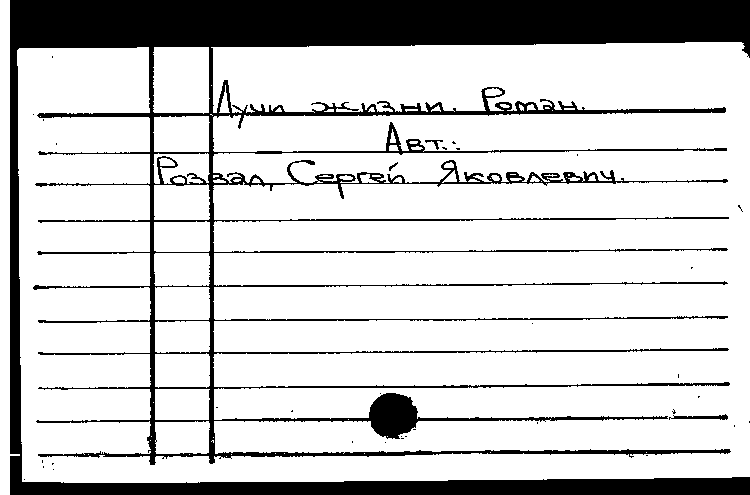 Лучи жизни. Роман.
Авт.:
Розвал, Сергей Яковлевич.